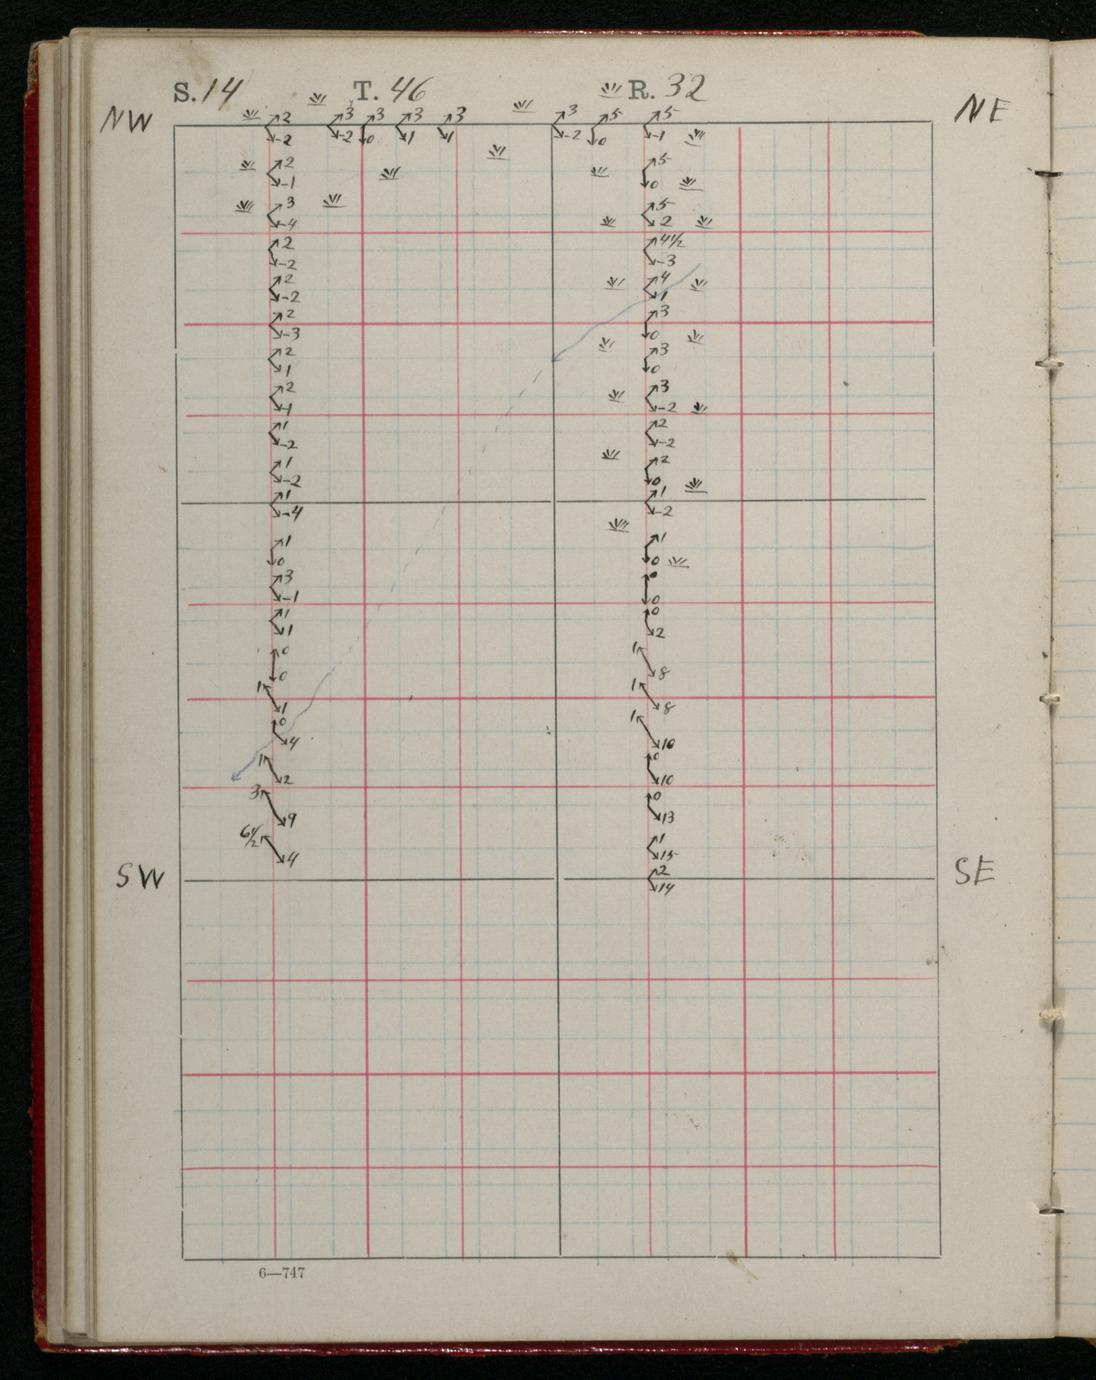 S. 14 T. 46 R. 32
NW NE
2 3 3 3 3 3 5 5
-2 -2 0 1 1 -2 0 -1
2 5
-1 0
3 5
-4 2
2 4½
-2 -3
2 4
-2 1
2 3
-3 0
2 3
1 0
2 3
1 -2
1 2
-2 -2
1 2
-2 0
1 1
-4 -2
1 1
0 0
3 0
-1 0
1 0
1 2
0 1
0 8
1 1
1 8
0 1
4 10
1 0
2 10
3 0
9 13
6½ 1
4 15
SW 2 SE
14
6—747